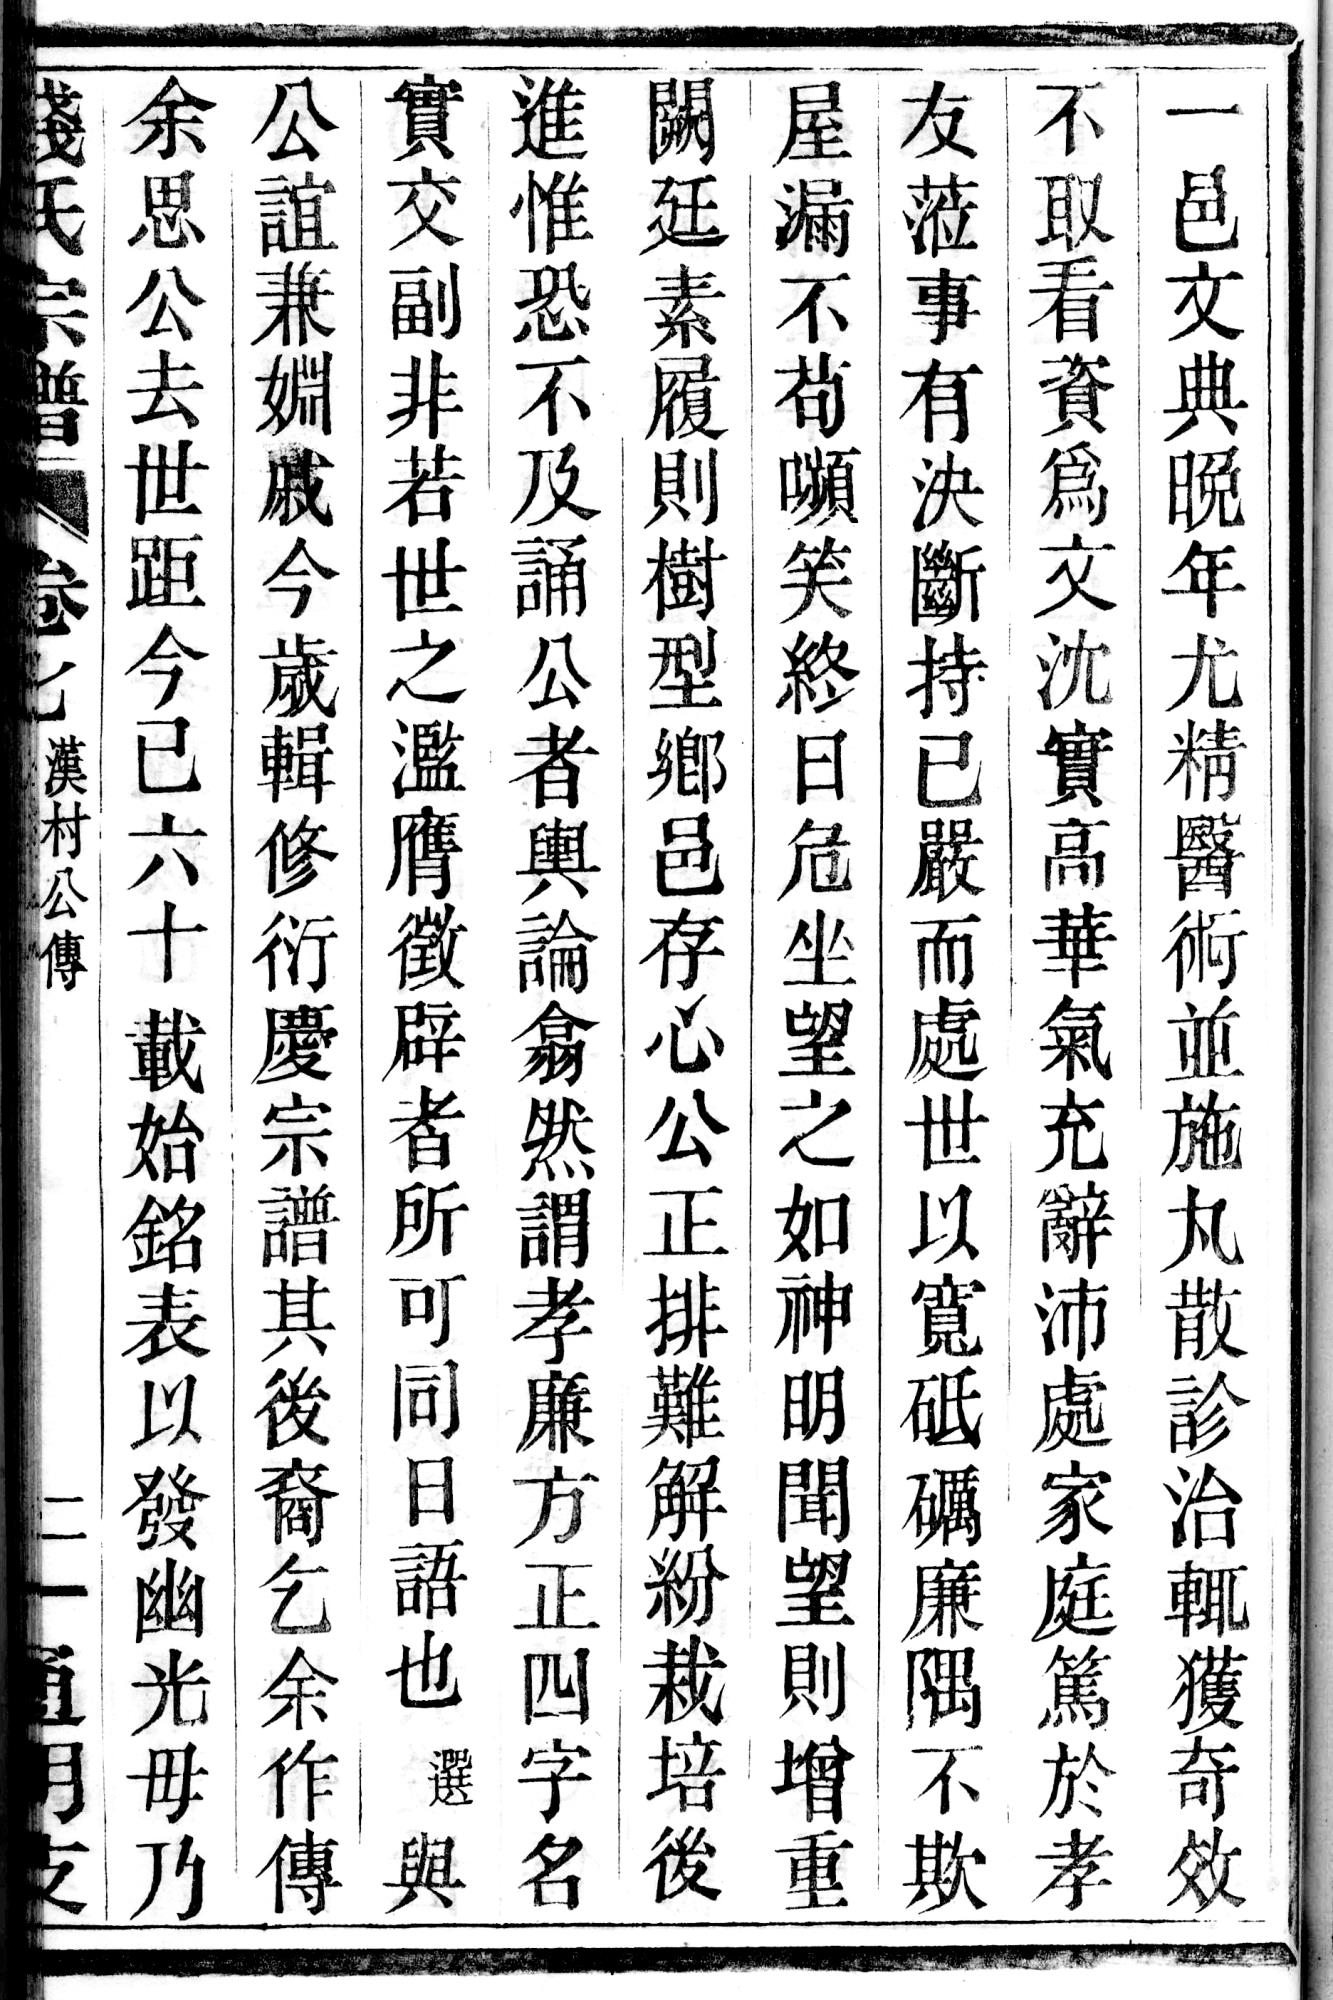 一邑文典晚年尤精醫術並施丸散診治輒獲奇效
不取看資爲文沈實高華氣充辭沛處家庭篤於孝
友蒞事有決斷持已嚴而處世以寬砥礪廉隅不欺
屋漏不苟嚬笑終日危坐望之如神明聞望則增重
闕廷素履則樹型鄉邑存心公正排難解紛栽培後
進惟恐不及誦公者輿論翕然謂孝廉方正四字名
實交副非若世之濫膺徵辟者所可同日語也 選與
公誼兼婣戚今歲輯修衍慶宗譜其後裔乞余作傳
余思公去世距今已六十載始銘表以發幽光毋乃
錢氏宗譜 卷七 漢村公傳 二一 通明支